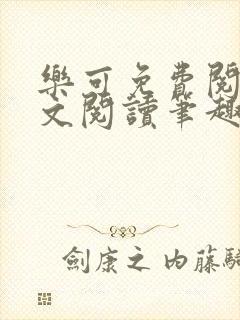 樂可免費閱
文閱讀筆趣
劍康之內藤騎